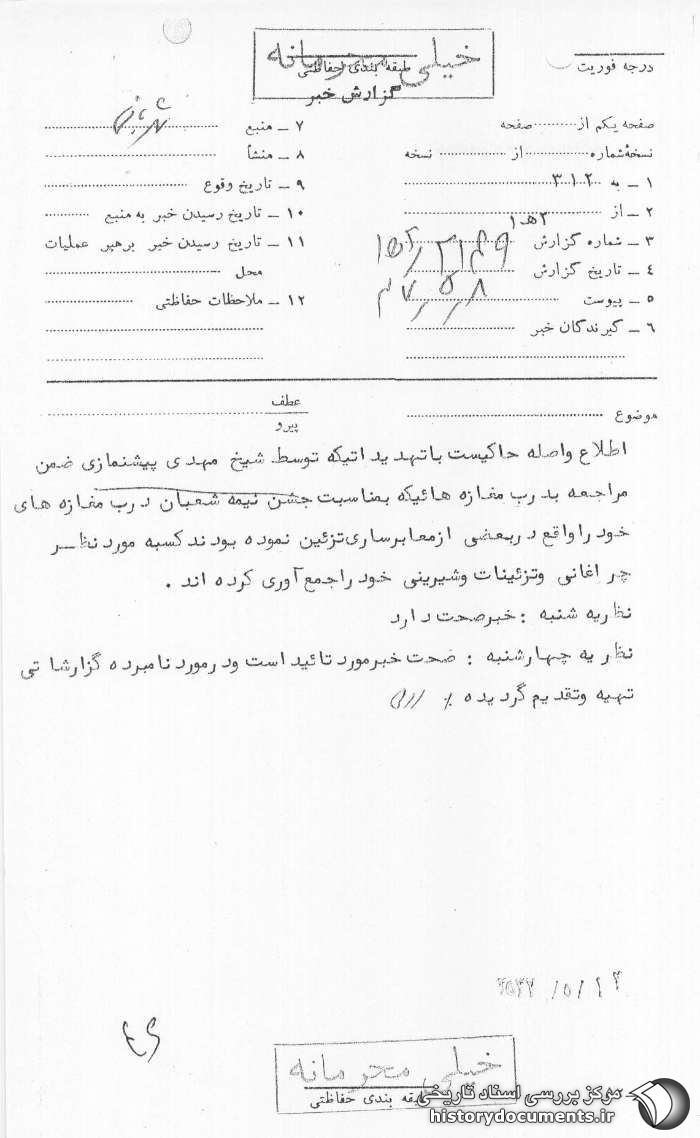 خیلی محرمانه
طبقه بندی حفاظتی
گزارش خبر
درجه فوریت
صفحه یکم از ........ صفحه
نسخهٔ شماره ........ از ........ نسخه
۱ ـ به ۳۱۲
۲ ـ از ۲هـ۱
۳ ـ شماره گزارش
۴ ـ تاریخ گزارش
۵ ـ پیوست
۶ ـ گیرندگان خبر
۷ ـ منبع
۸ ـ منشأ
۹ ـ تاریخ وقوع
۱۰ ـ تاریخ رسیدن خبر به منبع
۱۱ ـ تاریخ رسیدن خبر برهبر عملیات
محل
۱۲ ـ ملاحظات حفاظتی
موضوع
عطف
پیرو
اطلاع واصله حاکیست باتهدیداتیکه توسط شیخ مهدی پیشنمازی ضمن
مراجعه بدرب مغازه هائیکه بمناسبت جشن نیمه شعبان درب مغازه های
خود را واقع دربعضی ازمعابرساری تزئین نموده بودند کسبه مورد نظر
چراغانی وتزئینات وشیرینی خود راجمع آوری کرده اند .
نظریه شنبه : خبرصحت دارد
نظریه چهارشنبه : صحت خبرمورد تائید است ودرمورد نامبرده گزارشاتی
تهیه وتقدیم گردیده ٪
خیلی محرمانه
طبقه بندی حفاظتی
مرکز بررسی اسناد تاریخی
historydocuments.ir